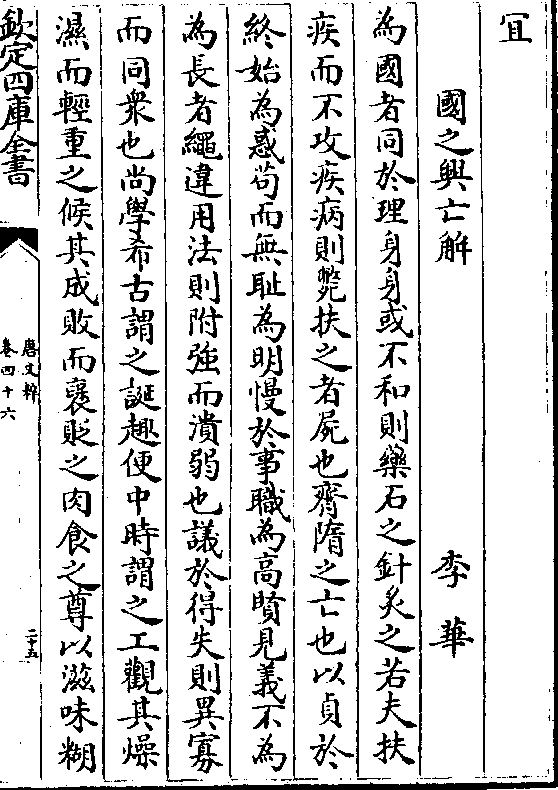 宜
國之興亡解 李華
為國者同於理身身或不和則藥石之針炙之若夫扶
疾而不攻疾病則斃扶之者屍也齊隋之亡也以貞於
終始為惑苟而無恥為明慢於事職為高賢見義不為
為長者繩違用法則附強而潰弱也議於得失則異寡
而同衆也尚學希古謂之誕趣便中時謂之工觀其燥
濕而輕重之候其成敗而襃貶之肉食之尊以滋味糊
欽定四庫全書
唐文粹
卷四十六
二十五